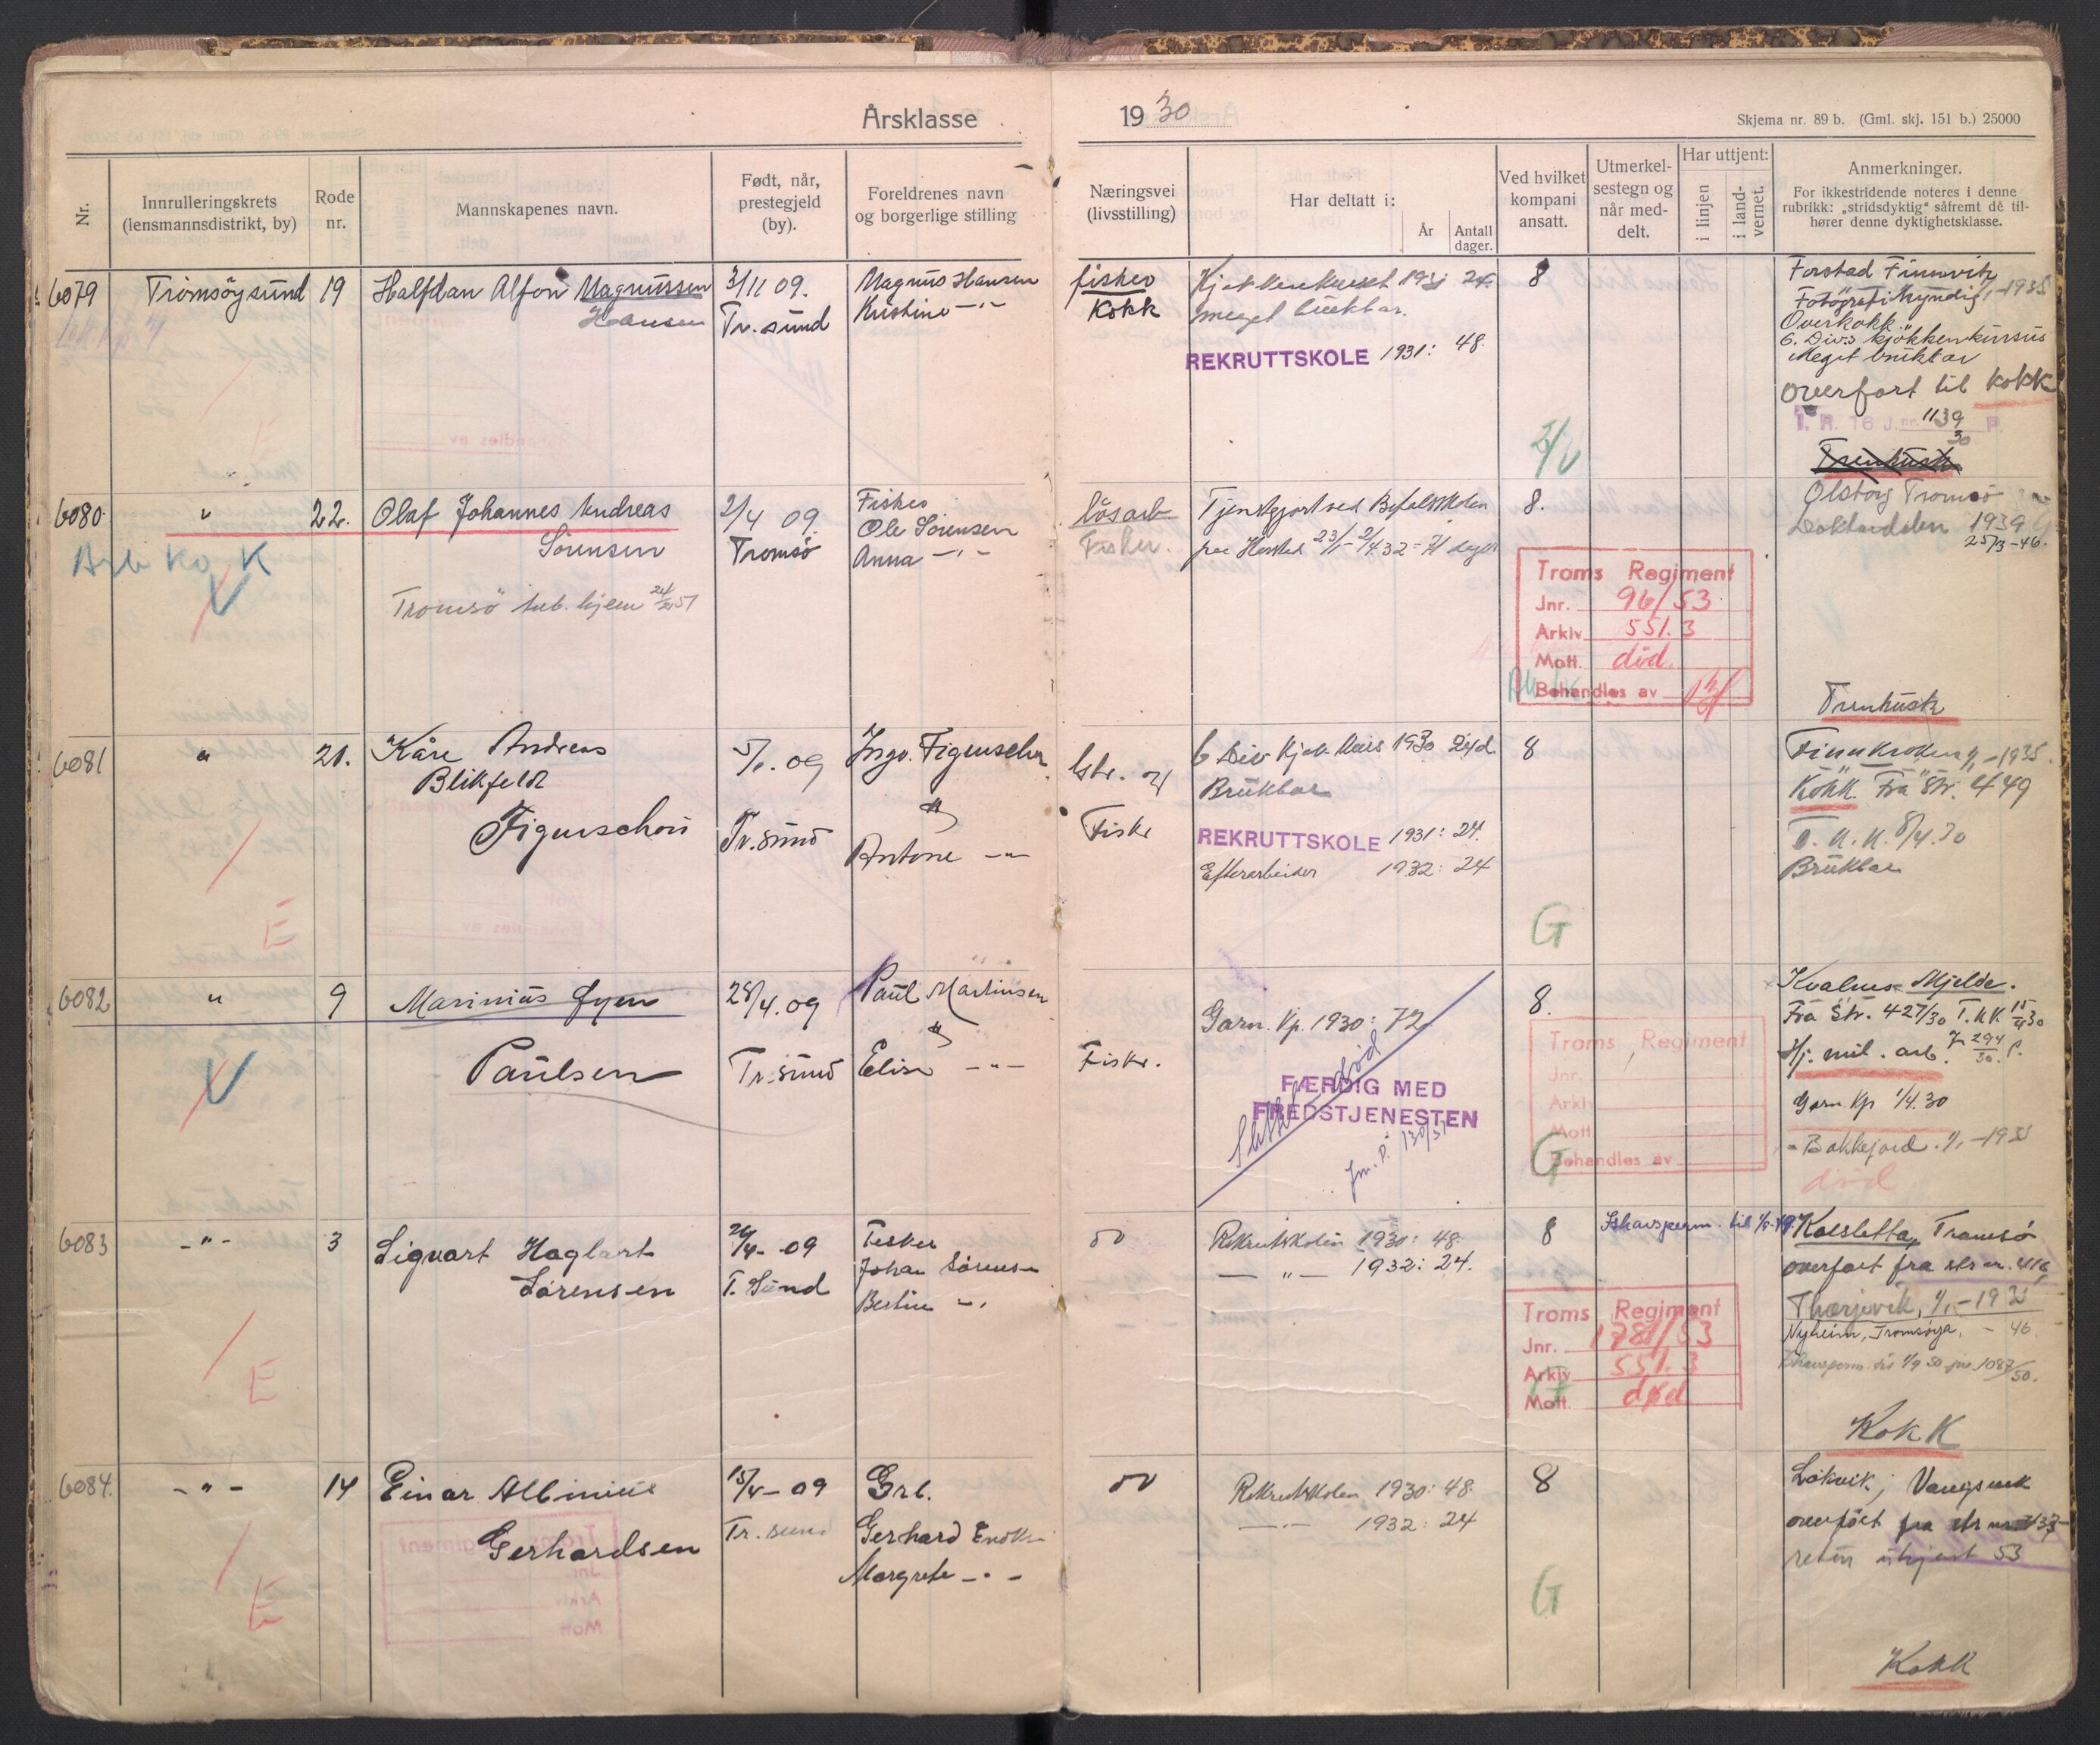 Årsklasse 1930
Skjema nr. 89 b. (Gml. skj. 151 b.) 25000
Nr.
Innrulleringskrets
(lensmannsdistrikt, by)
Rode
nr.
Mannskapenes navn.
Født, når,
prestegjeld
(by).
Foreldrenes navn
og borgerlige stilling
Næringsvei
(livsstilling)
Har deltatt i:
År
Antall
dager.
Ved hvilket
kompani
ansatt.
Utmerkel-
sestegn og
når med-
delt.
Har uttjent:
i linjen
i land-
vernet.
Anmerkninger.
For ikkestridende noteres i denne
rubrikk: „stridsdyktig“ såfremt de til-
hører denne dyktighetsklasse.
6079
Tromsøysund
19
Halfdan Alfon Magnussen
Hansen
3/11 09.
Tr. sund
Magnus Hansen
Kristine -"-
fisker
Kokk
Kjøkkenkurset 1931 24
meget brukbar.
REKRUTTSKOLE 1931: 48.
8
Forstad Finnvik
1935
Overkokk
6. Div:s kjøkkenkursus
Meget brukbar
Overført til kokk
I. R. 16 J. nr. 1139 P.
30
Trenkusk
6080
"
22.
Olaf Johannes Andreas
Sørensen
Tromsø
Arb Ko K
2/4 09.
Tromsø
Fisker
Ole Sørensen
Anna -"-
løsarb
Fisker.
Tjenstgjort ved Befalsskolen
23/1 - 2/4 32 = 71 dager
8.
Troms Regiment
Jnr. 96/53
Arkiv 551.3
Mott. død.
Behandles av
Olsborg Tromsø
1939
25/3-46.
Trenkusk
6081
"
21.
Kåre Andreas
Blikfeldt
Figenschou
5/1. 09
Tr. sund
Ingv. Figenschou
Antone -"-
Gbr. og
Fisker
6 Div Kjøk. kurs 1930 24 d.
Brukbar
REKRUTTSKOLE 1931: 24.
Efterarbeider 1932: 24
8
G
Finnkroken 1/1 - 1935.
Kokk. Fra Str. 449
8/4.30
Brukbar
E
6082
"
9
Marinius Gyer
Paulsen
28/4.09
Tr. sund
Paul Martinsen
Elise -"-
Fisker.
Garn. Kp. 1930: 72
FÆRDIG MED
FREDSTJENESTEN
Slettet død
Jnr. P. 130/31
8.
Troms Regiment
Jnr.
Arkiv
Mott.
Behandles av
G
Kvalnes Mjelde.
Fra Str. 427/30 T.KV. 15/4 30
Hj. mil. arb. J 294/30. P.
Garn. Kp 1/4.30
- Bakkejord. 1/1 - 1935
død
6083
-"-
3
Sigvart Haglart
Sørensen
26/4- 09
T. Sund
Fisker
Johan Sørensen
Bertine -"-
do
Rekruttskolen 1930: 48.
-"- 1932: 24.
8
Troms Regiment
Jnr. 1781/53
Arkiv 551.3
Mott. død
Kaesletta, Tromsø
overført fra str nr. 416
1/1-1935
Nyheim, Tromsøya, - 46.
Kokk
E
6084.
-"-
14
Einar Albinius
Gerhardsen
15/4-09
Tr. sund
Grb.
Gerhard
Margrete -"-
do
Rekruttskolen 1930: 48.
-"- 1932: 24
8
G
Løkvik,
overført fra str nr
53
Kokk
E